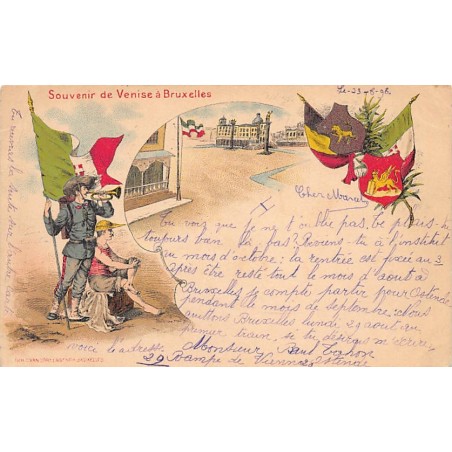 Souvenir de Venise à Bruxelles
Le 23-8-98
Cher Marcel
Tu vois que je ne t'oublie pas, te plais-tu
toujours bien là bas? Reviens-tu à l'institut
au mois d'octobre: la rentrée est fixée au 3
Après être resté tout le mois d'août à
Bruxelles je compte partir pour Ostende
pendant le mois de septembre. Nous
quittons Bruxelles lundi 29 août au
premier train, si tu désires m'écrire,
voici l'adresse Monsieur Paul
29 Rampe de Vienne Ostende